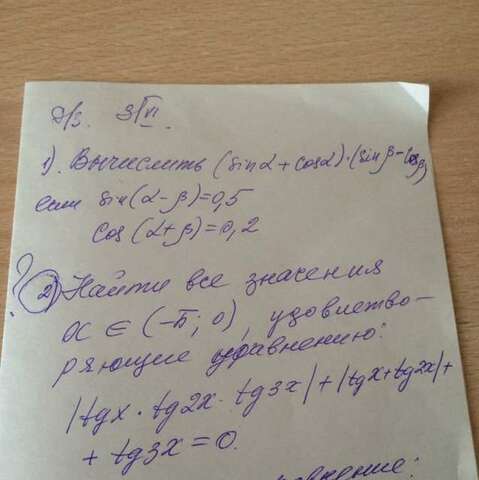 Д/З. 3/VI.
1). Вычислить (sinα + cosα)·(sinβ - cosβ)
если sin(α-β)=0,5
cos(α+β)=0,2
?
2) Найти все значения
x ∈ (-π; 0), удовлетво-
ряющие уравнению:
|tgx · tg2x · tg3x| + |tgx + tg2x| +
+ tg3x = 0.